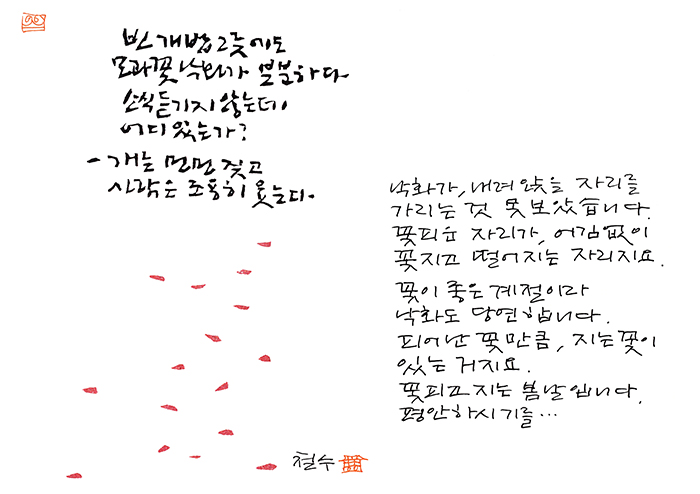 빈 개밥그릇에도
모과꽃 낙화가 분분하다
소식 듣기지 않는데
어디 있는가?
- 개는 먼먼 짖고
사람은 조용히 웃는다.
낙화가, 내려 앉을 자리를
가리는 것 못 보았습니다.
꽃피운 자리가, 어김없이
꽃지고 떨어지는 자리지요.
꽃이 좋은 계절이라
낙화도 당연합니다.
피어난 꽃만큼, 지는 꽃이
있는 거지요.
꽃피고 지는 봄날입니다.
평안하시기를...
철수